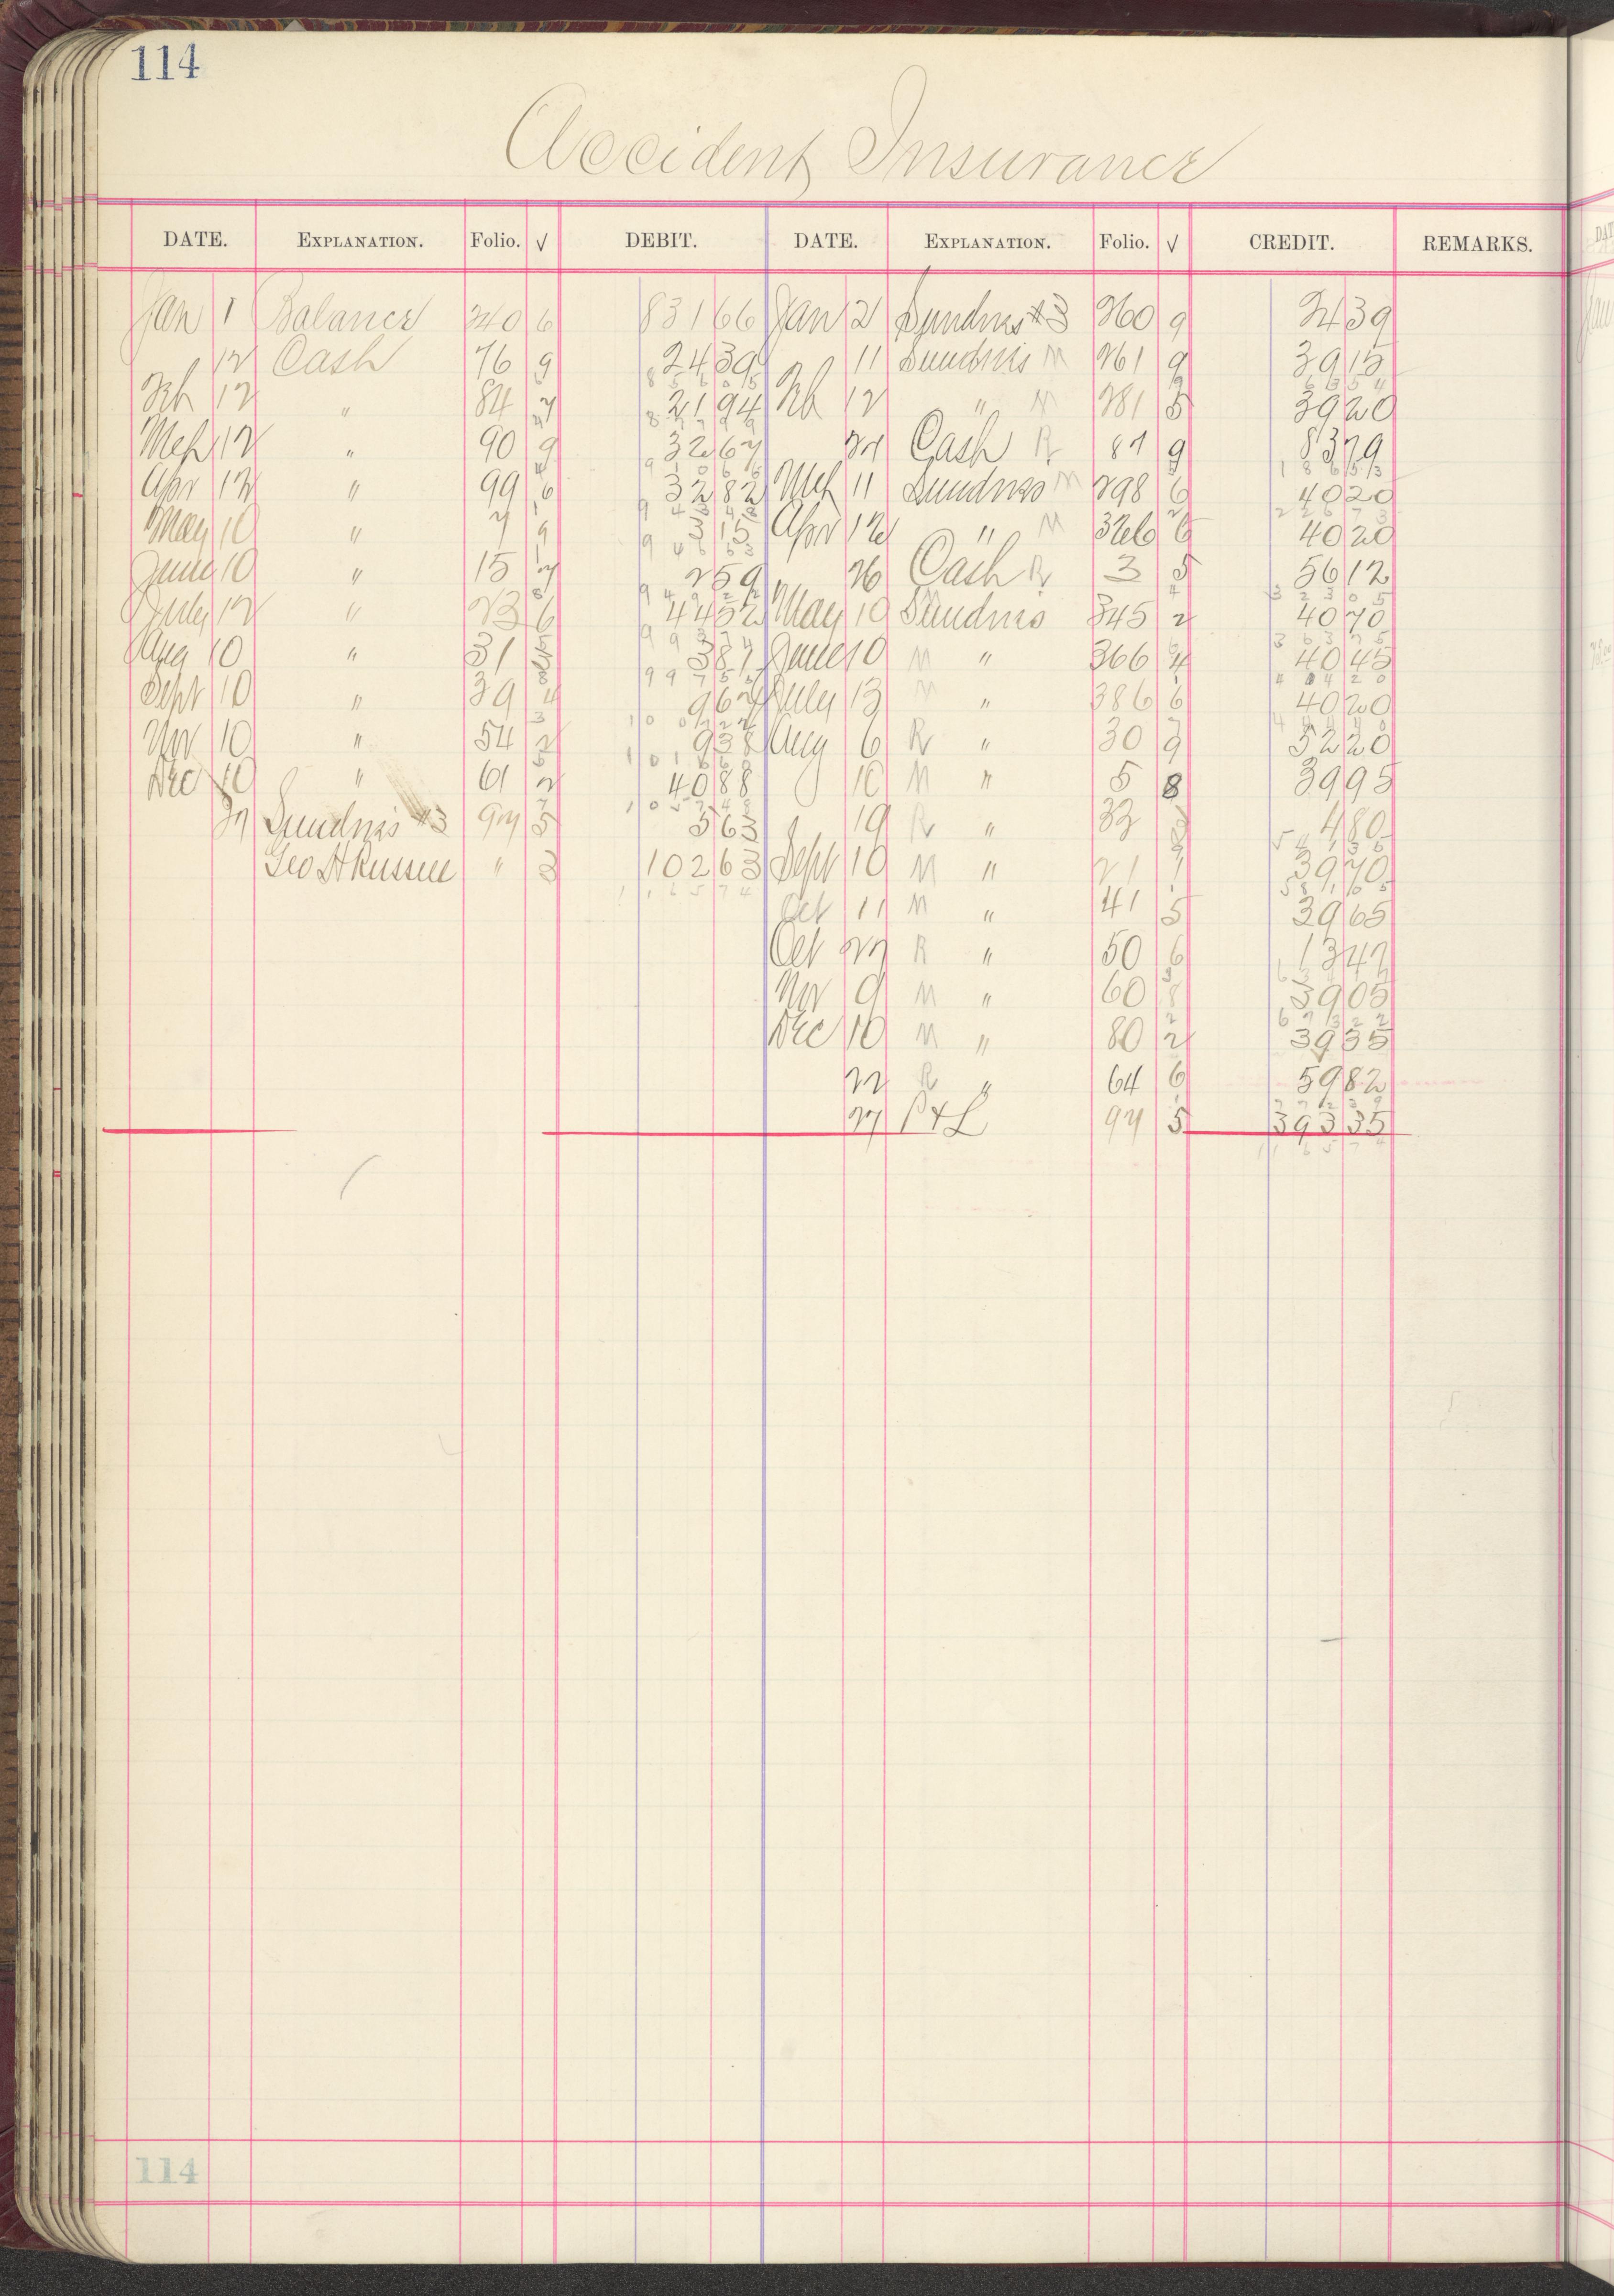 114
Accident Insurance
DATE. EXPLANATION. Folio. √ DEBIT. DATE. EXPLANATION. Folio. √ CREDIT. REMARKS.
Jan 1 Balance 240 6 831 66 Jan 2 Sundries #3 260 9 24 39
12 Cash 76 9 24 39 11 Sundries M 261 9 39 15
Feb 12 " 84 7 21 94 Feb 12 " M 281 5 39 20
Mch 12 " 90 9 32 67 27 Cash R 87 9 83 79
Apr 12 " 99 6 32 82 Mch 11 Sundries M 298 6 40 20
May 10 " 7 9 3 15 Apr 12 " M 326 6 40 20
June 10 " 15 7 2 59 26 Cash R 3 5 56 12
July 12 " 23 6 44 52 May 10 Sundries 345 2 40 70
Aug 10 " 31 3 81 June 10 M " 366 4 40 45
Sept 10 " 39 4 9 62 July 13 M " 386 6 40 20
Nov 10 " 54 2 9 38 Aug 6 R " 30 9 52 20
Dec 10 " 61 2 40 88 10 M " 5 8 39 95
27 Sundries #3 97 5 5 63 19 R " 33 4 80
Geo H Russell " 3 102 63 Sept 10 M " 21 1 39 70
Oct 11 M " 41 5 39 65
Oct 27 R " 50 6 13 47
Nov 9 M " 60 8 39 05
Dec 10 M " 80 2 39 35
22 R " 64 6 59 82
27 P & L 97 5 393 35
114